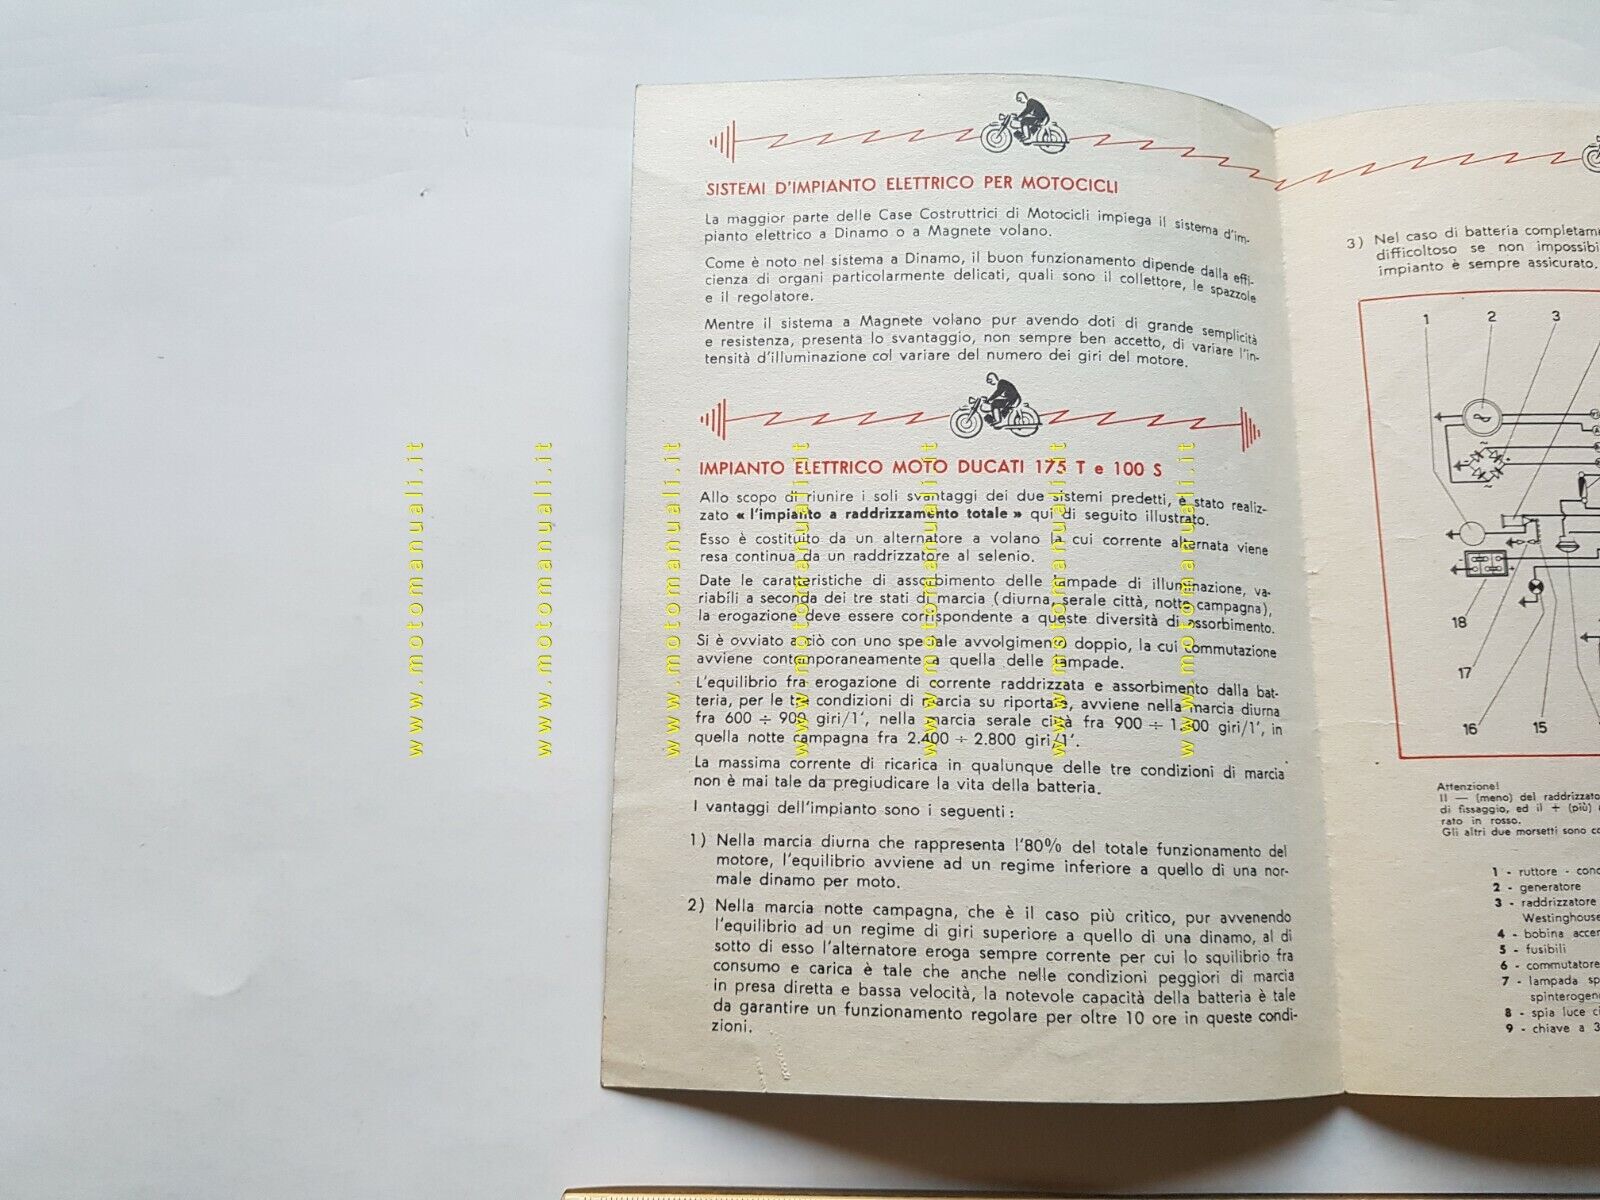 SISTEMI D'IMPIANTO ELETTRICO PER MOTOCICLI
La maggior parte delle Case Costruttrici di Motocicli impiega il sistema d'im-
pianto elettrico a Dinamo o a Magnete volano.
Come è noto nel sistema a Dinamo, il buon funzionamento dipende dalla effi-
cienza di organi particolarmente delicati, quali sono il collettore, le spazzole
e il regolatore.
Mentre il sistema a Magnete volano pur avendo doti di grande semplicità
e resistenza, presenta lo svantaggio, non sempre ben accetto, di variare l'in-
tensità d'illuminazione col variare del numero dei giri del motore.
IMPIANTO ELETTRICO MOTO DUCATI 175 T e 100 S
Allo scopo di riunire i soli svantaggi dei due sistemi predetti, è stato realiz-
zato « l'impianto a raddrizzamento totale » qui di seguito illustrato.
Esso è costituito da un alternatore a volano la cui corrente alternata viene
resa continua da un raddrizzatore al selenio.
Date le caratteristiche di assorbimento delle lampade di illuminazione, va-
riabili a seconda dei tre stati di marcia (diurna, serale città, notte campagna),
la erogazione deve essere corrispondente a queste diversità di assorbimento.
Si è ovviato a ciò con uno speciale avvolgimento doppio, la cui commutazione
avviene contemporaneamente a quella delle lampade.
L'equilibrio fra erogazione di corrente raddrizzata e assorbimento dalla bat-
teria, per le tre condizioni di marcia su riportate, avviene nella marcia diurna
fra 600 ÷ 900 giri/1', nella marcia serale città fra 900 ÷ 1.200 giri/1', in
quella notte campagna fra 2.400 ÷ 2.800 giri/1'.
La massima corrente di ricarica in qualunque delle tre condizioni di marcia
non è mai tale da pregiudicare la vita della batteria.
I vantaggi dell'impianto sono i seguenti :
1) Nella marcia diurna che rappresenta l'80% del totale funzionamento del
motore, l'equilibrio avviene ad un regime inferiore a quello di una nor-
male dinamo per moto.
2) Nella marcia notte campagna, che è il caso più critico, pur avvenendo
l'equilibrio ad un regime di giri superiore a quello di una dinamo, al di
sotto di esso l'alternatore eroga sempre corrente per cui lo squilibrio fra
consumo e carica è tale che anche nelle condizioni peggiori di marcia
in presa diretta e bassa velocità, la notevole capacità della batteria è tale
da garantire un funzionamento regolare per oltre 10 ore in queste condi-
zioni.
3) Nel caso di batteria completam
difficoltoso se non impossibi
impianto è sempre assicurato.
1 2 3
18
17
16 15
Attenzione!
Il — (meno) del raddrizzato
di fissaggio, ed il + (più)
rato in rosso.
Gli altri due morsetti sono co
1 - ruttore - cond
2 - generatore
3 - raddrizzatore
Westinghouse
4 - bobina accen
5 - fusibili
6 - commutatore
7 - lampada sp
spinterogen
8 - spia luce ci
9 - chiave a 3
www.motomanuali.it
www.motomanuali.it
www.motomanuali.it
www.motomanuali.it
www.motomanuali.it
www.motomanuali.it
www.motomanuali.it